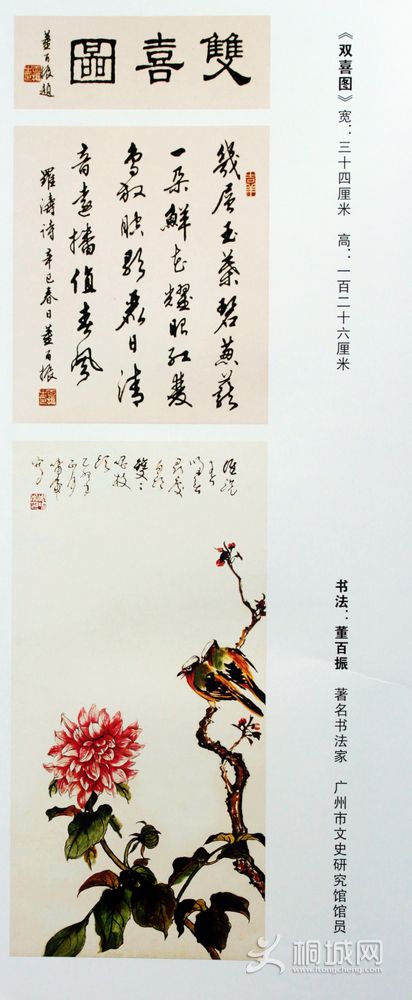 《双喜图》 宽：三十四厘米 高：一百二十六厘米
书法：董百振 著名书法家 广州市文史研究馆馆员
雙喜圖
董百振題
幾層玉葉碧蔥蘢
一朵鮮花耀眼紅雙
鳥麗日清
音遠播值春風
羅濤詩 辛巳春日董百振
桐城网
www.itongcheng.com